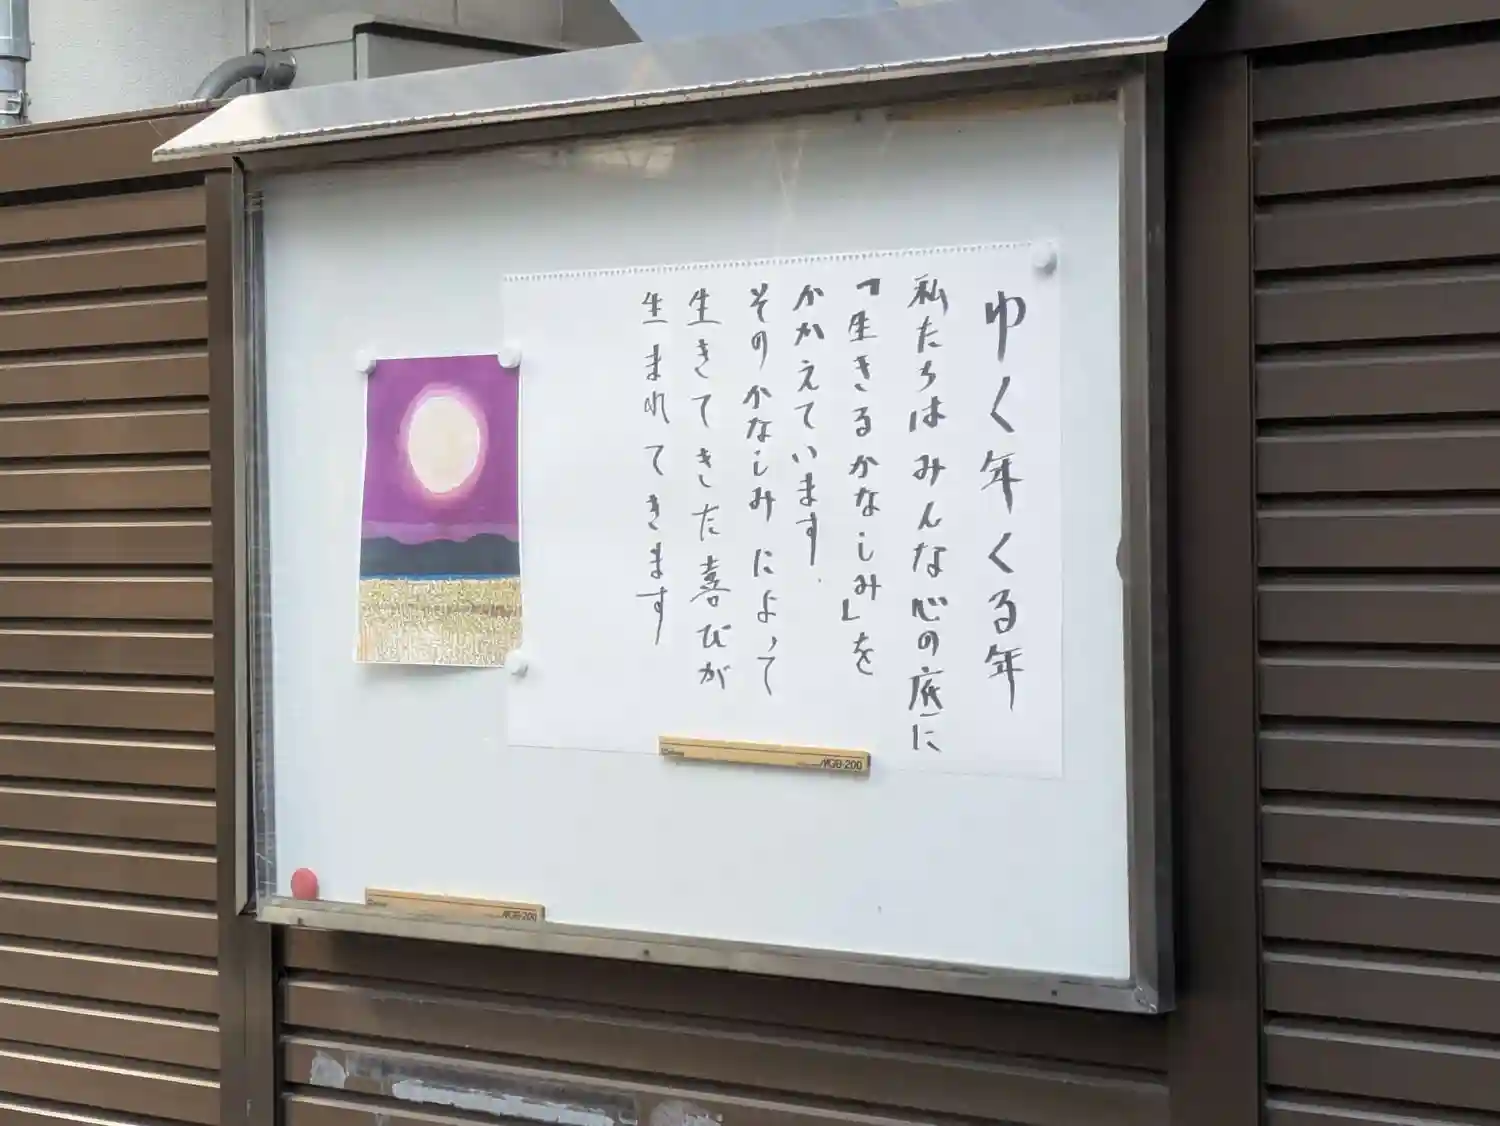 ゆく年くる年
私たちはみんな心の底に
「生きるかなしみ」を
かかえています.
そのかなしみによって
生きてきた喜びが
生まれてきます
MGB-200
MGB-200